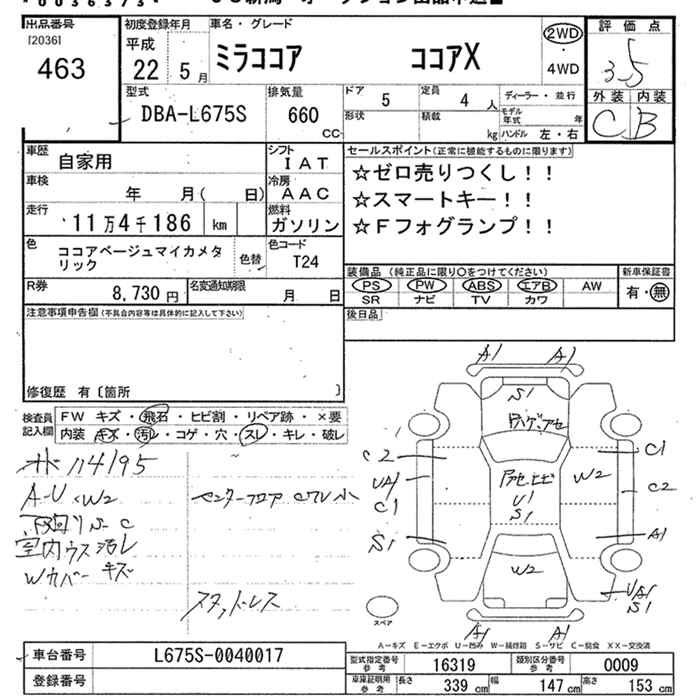 出品番号
[2036]
463
初度登録年月
平成
22年 5月
車名・グレード
ミラココア ココアX
2WD
・
4WD
評価点
3.5
外装 内装
C B
型式
DBA-L675S
排気量
660
CC
ドア
5
定員
4人
形状
積載
kg
ディーラー・並行
モデル年式 年
ハンドル 左・右
車歴
自家用
シフト
IAT
車検
年 月( 日)
冷房
AAC
走行
11万4千186 km
燃料
ガソリン
色
ココアベージュマイカメタリック
色替
色コード
T24
R券
8,730円
名変通知期限
月 日
セールスポイント(正常に機能するものに限ります)
☆ゼロ売りつくし!!
☆スマートキー!!
☆Fフォグランプ!!
装備品 (純正品に限り○をつけてください)
PS PW ABS エアB AW
SR ナビ TV カワ
新車保証書
有・無
後日品
注意事項申告欄(不具合内容等は具体的に記入して下さい)
修復歴 有〔箇所 〕
検査員記入欄
FW キズ・飛石・ヒビ割・リペア跡・×要
内装 キズ・汚レ・コゲ・穴・スレ・キレ・破レ
114195
A-U W2
下回り S-C
室内ウス汚レ
Wカバーキズ
センターフロア CワレS小
スタッドレス
A1 A1
S1
C2
UA1
C1
S1
U1
S1
W2
W2
C1
C2
A1
UA1
S1
A1 A1
スペア
A-キズ E-エクボ U-凹み W-補修跡 S-サビ C-腐食 XX-交換済
車台番号
L675S-0040017
登録番号
型式指定番号
参考
16319
類別区分番号
参考
0009
車庫証明用
参考
長さ 339 cm
幅 147 cm
高さ 153 cm